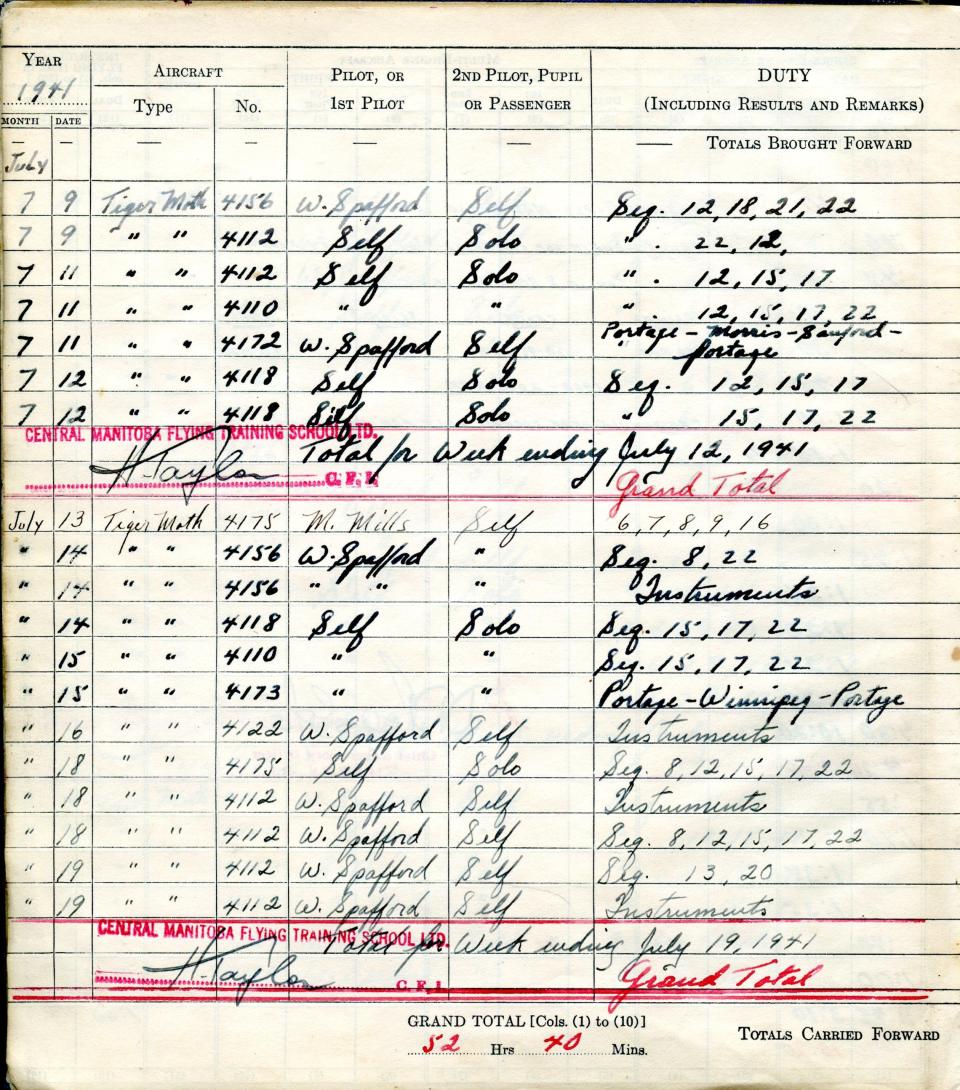 YEAR AIRCRAFT PILOT, OR 2ND PILOT, PUPIL DUTY
1941 Type No. 1ST PILOT OR PASSENGER (INCLUDING RESULTS AND REMARKS)
MONTH DATE
— — — — — — — TOTALS BROUGHT FORWARD
July
7 9 Tiger Moth 4156 W. Spafford Self Seq. 12, 18, 21, 22
7 9 " " 4112 Self Solo " . 22, 12,
7 11 " " 4112 Self Solo " . 12, 15, 17
7 11 " " 4110 " " " . 12, 15, 17, 22
7 11 " " 4172 W. Spafford Self Portage - Morris - Sanford -
Portage
7 12 " " 4118 Self Solo Seq. 12, 15, 17
7 12 " " 4118 Self Solo " 15, 17, 22
CENTRAL MANITOBA FLYING TRAINING SCHOOL LTD.
Total for Week ending July 12, 1941
H. Taylor C. F. I.
Grand Total
July 13 Tiger Moth 4175 M. Mills Self 6, 7, 8, 9, 16
" 14 " " 4156 W. Spafford " Seq. 8, 22
" 14 " " 4156 " " " Instruments
" 14 " " 4118 Self Solo Seq. 15, 17, 22
" 15 " " 4110 " " Seq. 15, 17, 22
" 15 " " 4173 " " Portage - Winnipeg - Portage
" 16 " " 4122 W. Spafford Self Instruments
" 18 " " 4175 Self Solo Seq. 8, 12, 15, 17, 22
" 18 " " 4112 W. Spafford Self Instruments
" 18 " " 4112 W. Spafford Self Seq. 8, 12, 15, 17, 22
" 19 " " 4112 W. Spafford Self Seq. 13, 20
" 19 " " 4112 W. Spafford Self Instruments
CENTRAL MANITOBA FLYING TRAINING SCHOOL LTD.
Total for Week ending July 19, 1941
H. Taylor C. F. I.
Grand Total
GRAND TOTAL [Cols. (1) to (10)]
52 Hrs 40 Mins.
TOTALS CARRIED FORWARD